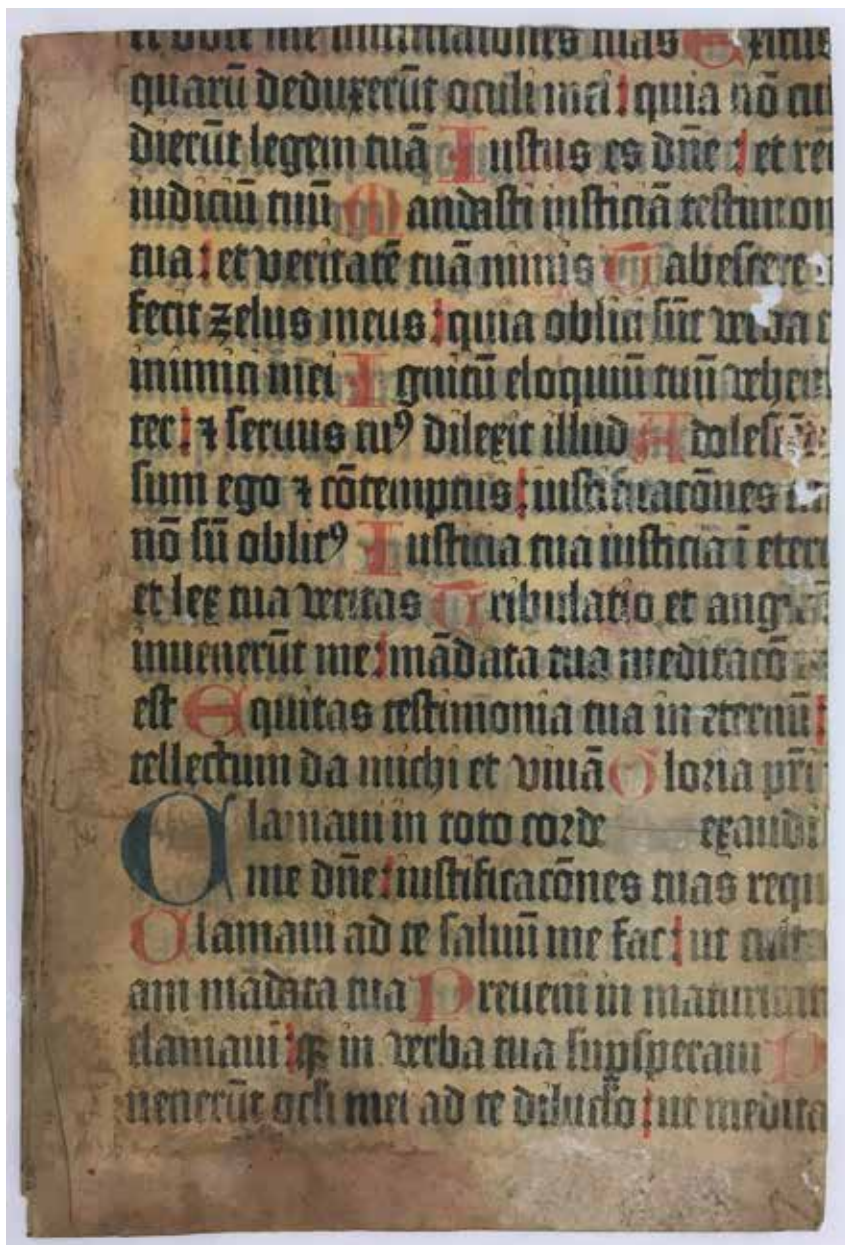 et doce me iustificatōnes tuas Exitus
quarū deduxerūt oculi mei : quia nō cu
dierūt legem tuā Iustus es dn̄e : et re
iudiciū tuū Mandasti iusticiā testimon
tua : et veritatē tuā nimis Tabescere
fecit zelus meus : quia obliti sūt verba
inimici mei Ignitū eloquiū tuū vehem
ter : ⁊ seruus tuꝰ dilexit illud Adolescē
sum ego ⁊ cōtemptus : iustificatōnes
nō sū oblitꝰ Iusticia tua iusticia ī eter
et lex tua veritas Tribulatio et angus
inuenerūt me : mādata tua meditacō
est Equitas testimonia tua in eternū :
tellectum da michi et viuā Gloria pr̄i
Clamaui in toto corde exaudi
me dn̄e : iustificacōnes tuas requ
Clamaui ad te saluū me fac : ut custo
am mādata tua Preueni in maturitat
clamaui : qꝛ in verba tua supsperaui P
uenerūt ocli mei ad te diluclo : ut medita